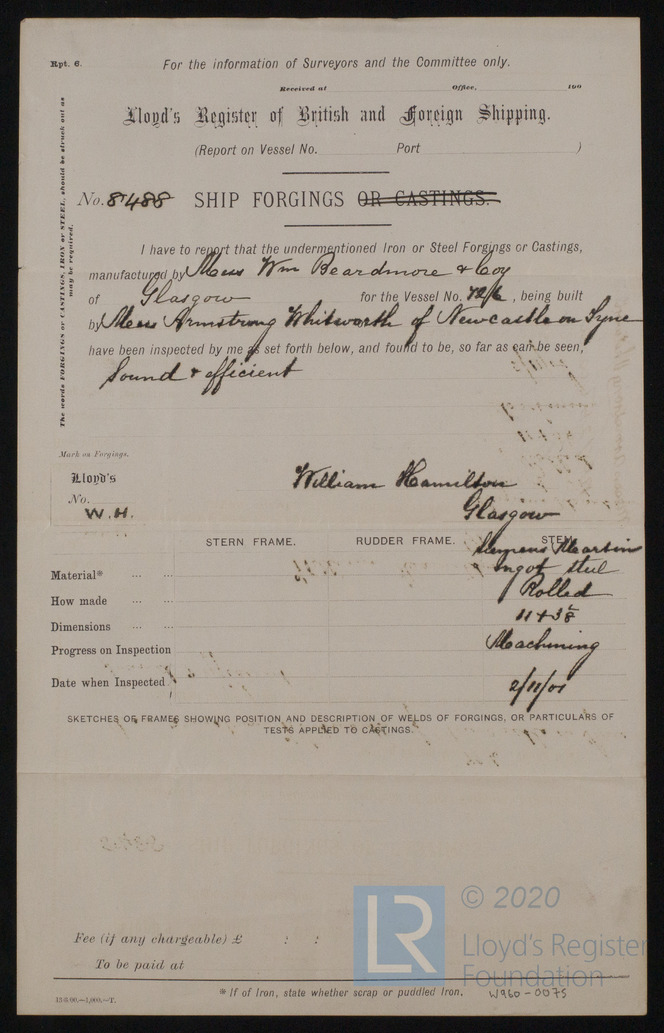 Rpt. 6.
For the information of Surveyors and the Committee only.
Received at Office, 190
Lloyd's Register of British and Foreign Shipping.
(Report on Vessel No. Port )
The words FORGINGS or CASTINGS, IRON or STEEL, should be struck out as
may be required.
No. 8488 SHIP FORGINGS OR CASTINGS.
I have to report that the undermentioned Iron or Steel Forgings or Castings,
manufactured by Mess Wm Beardmore & Coy
of Glasgow for the Vessel No. , being built
by Mess Armstrong Whitworth of Newcastle on Tyne
have been inspected by me as set forth below, and found to be, so far as can be seen,
Sound & efficient
Mark on Forgings.
Lloyd's
No.
W.H.
William Hamilton
Glasgow
STERN FRAME. RUDDER FRAME. STEM.
Material* ... ... Siemens Martin
ingot steel
How made ... ... Rolled
Dimensions ... ...
Progress on Inspection Machining
Date when Inspected 2/11/01
SKETCHES OF FRAMES SHOWING POSITION AND DESCRIPTION OF WELDS OF FORGINGS, OR PARTICULARS OF
TESTS APPLIED TO CASTINGS.
Fee (if any chargeable) £ : :
To be paid at
* If of Iron, state whether scrap or puddled Iron.
W960-0075
LR
© 2020
Lloyd's Register
Foundation